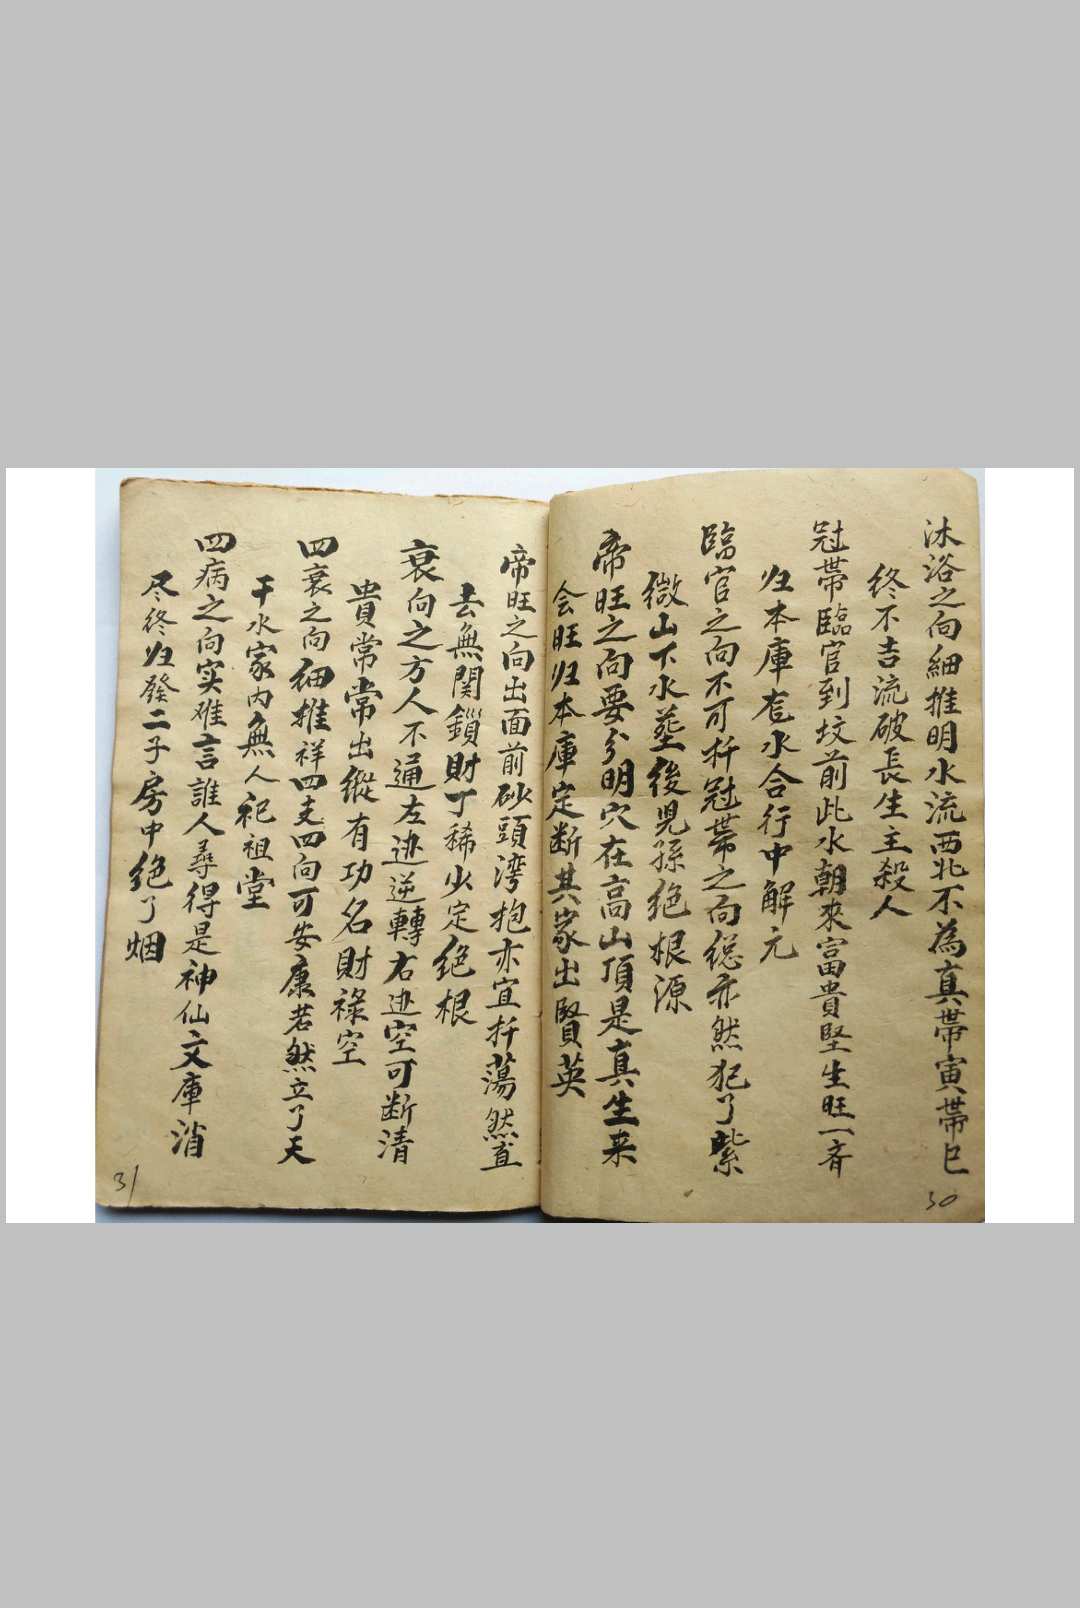 沐浴之向細推明水流西北不為真帶寅帶巳
終不吉流破長生主殺人
冠帶臨官到坟前此水朝來富貴堅生旺一斉
归本庫水合行中解元
臨官之向不可扦冠帶之向総亦然犯了紫
微山下水塟後児孫绝根源
帝旺之向要分明穴在高山頂是真生来
会旺归本庫定断其家出賢英
30
帝旺之向出面前砂頭湾抱亦宜扦蕩然直
去無関鎖財丁稀少定绝根
衰向之方人不通左逆轉右空可断清
貴常常出縱有功名財祿空
四衰之向細推祥四支四向可安康若然立了天
干水家内無人祀祖堂
四病之向实难言誰人尋得是神仙文庫消
尽終归發二子房中绝了烟
31